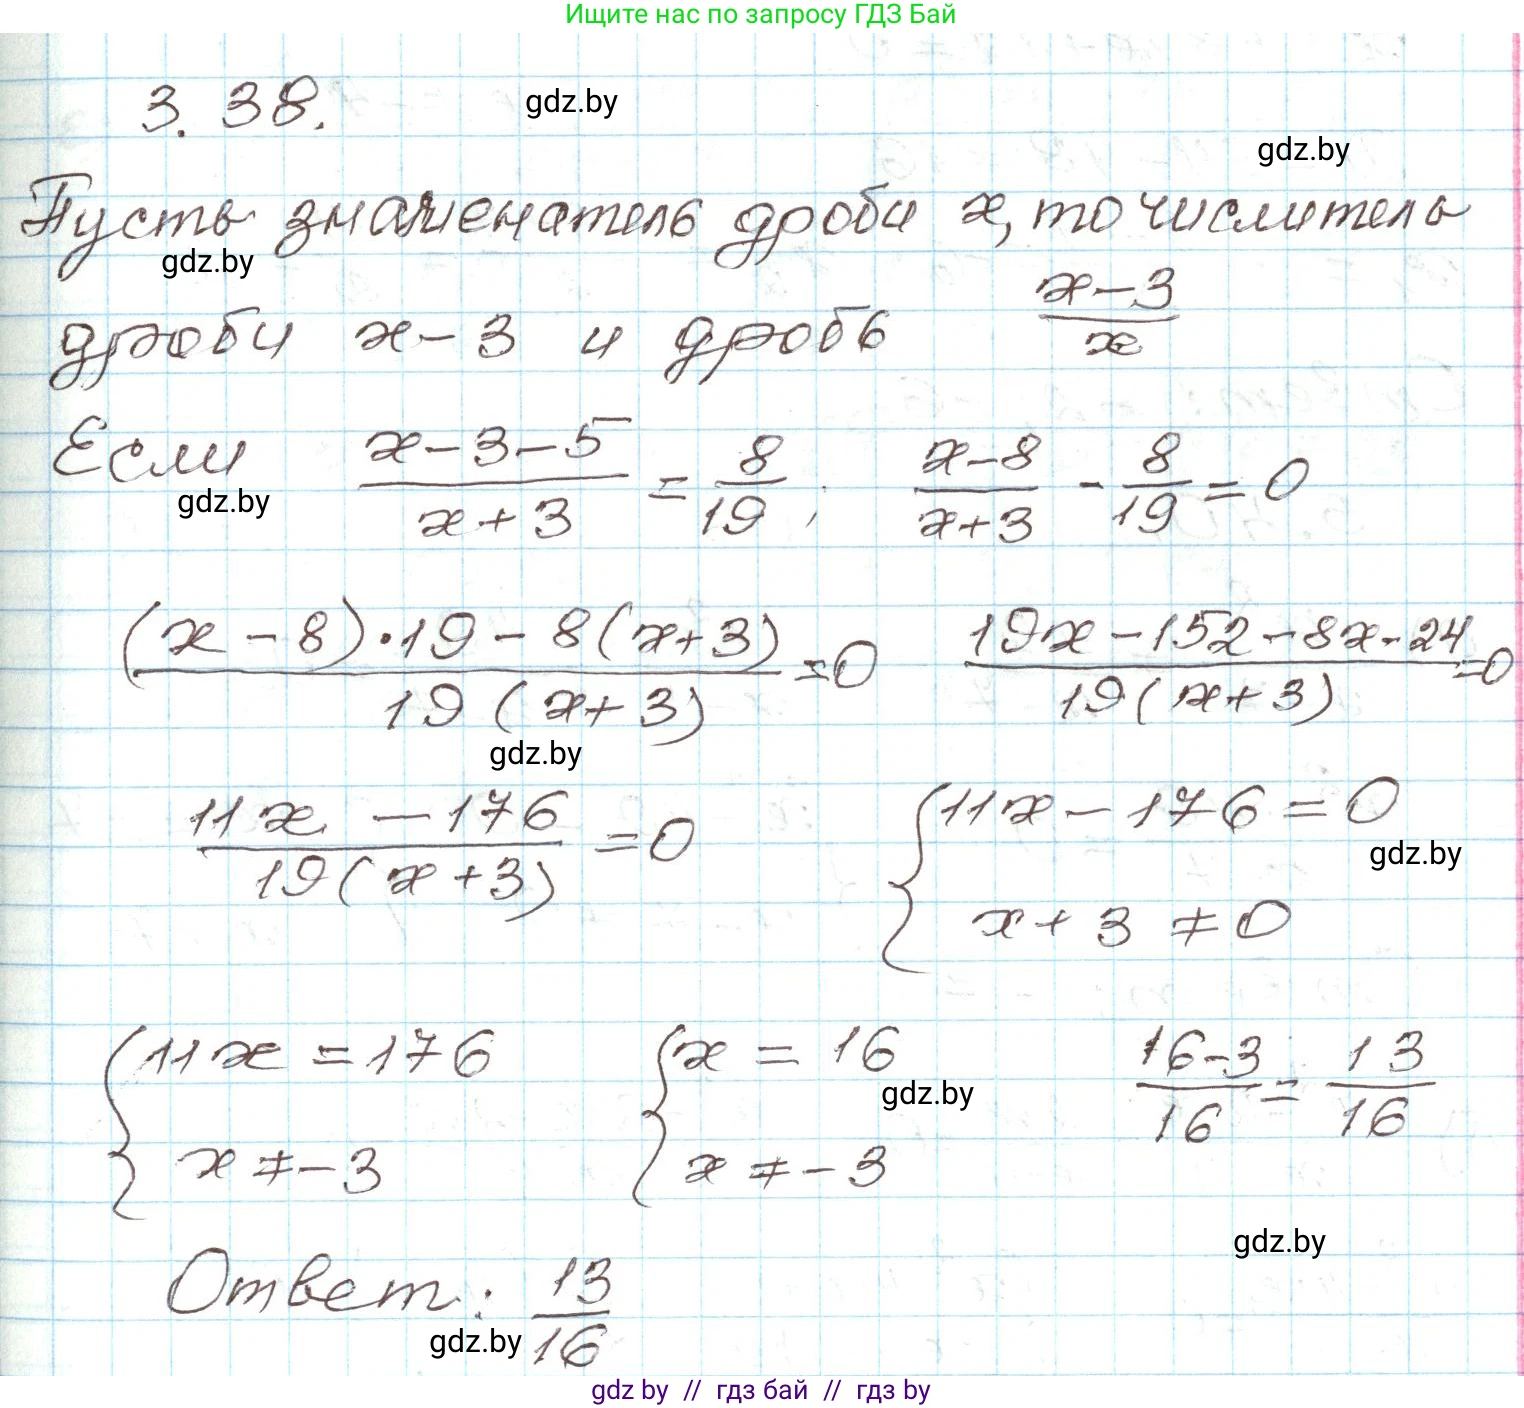 Ищите нас по запросу ГДЗ Бай
3.38.
gdz.by
gdz.by
Пусть знаменатель дроби x, то числитель
gdz.by
дроби x-3 и дробь (x-3)/x
Если (x-3-5)/(x+3) = 8/19; (x-8)/(x+3) - 8/19 = 0
gdz.by
((x-8)·19-8(x+3))/(19(x+3)) = 0 (19x-152-8x-24)/(19(x+3)) = 0
gdz.by
(11x-176)/(19(x+3)) = 0 { 11x-176=0
gdz.by
x+3≠0
{ 11x=176 { x=16 (16-3)/16 = 13/16
gdz.by
x≠-3 x≠-3
gdz.by
Ответ: 13/16
gdz.by
gdz by // гдз бай // гдз by